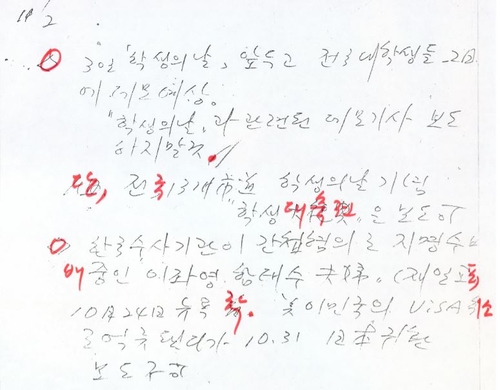 3일 「학생의날」 앞두고 전국대학생들 2일
에 데모예상.
「학생의날」과 관련된 데모기사 보도
하지말것.
단, 전국 13개市道 학생의날 기념
"학생대축전"은 보도可
한국수사기관이 간첩혐의로 지명수
배중인 이좌영 夫婦 (재일교포)
10月24日 뉴욕 착. 美이민국의 VISA 취소
로 억류됐다가 10.31 日本귀환
보도불可